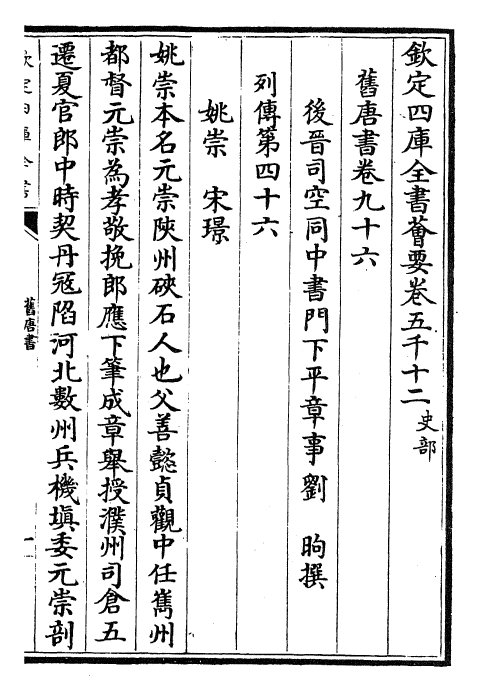 欽定四庫全書薈要卷五千十二 史部
舊唐書卷九十六
後晉司空同中書門下平章事劉 昫撰
列傳第四十六
姚崇 宋璟
姚崇本名元崇陜州硤石人也父善懿貞觀中任嶲州
都督元崇為孝敬挽郎應下筆成章舉授濮州司倉五
遷夏官郎中時契丹冦陷河北數州兵機填委元崇剖
欽定四庫全書
舊唐書
一